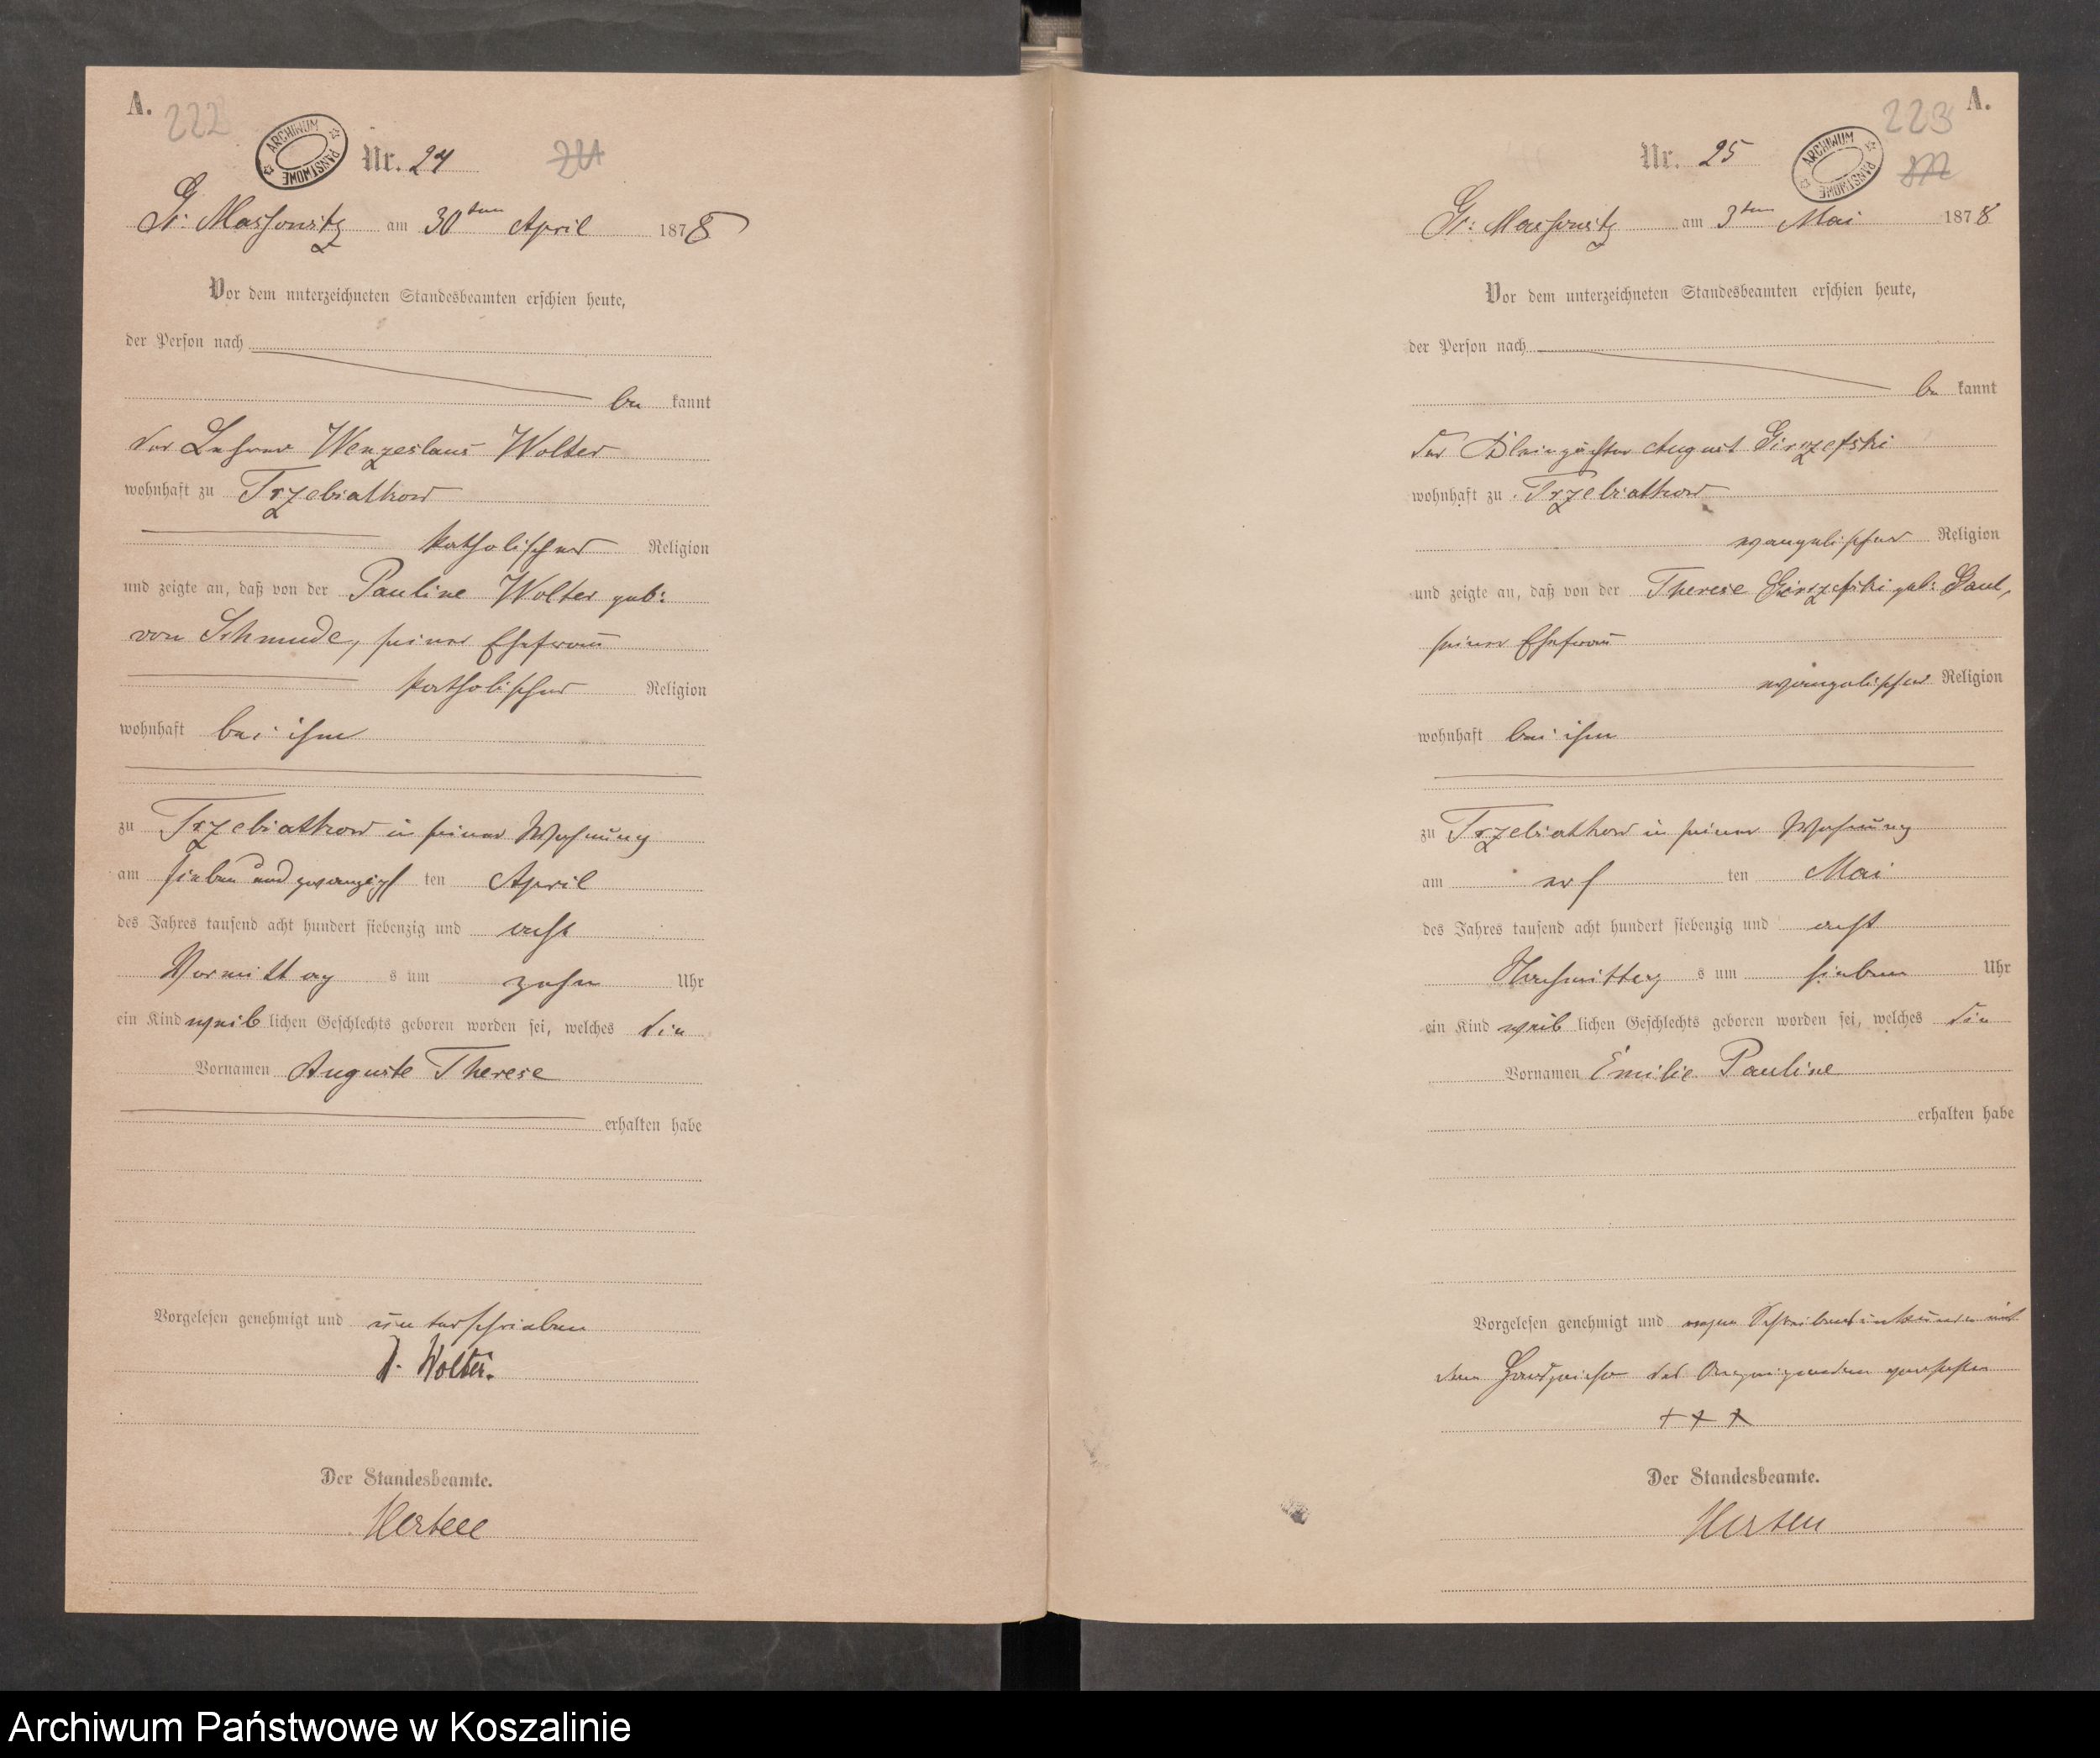 A.
222
ARCHIWUM PAŃSTWOWE
Nr. 24
24
Gr: Massowitz am 30ten April 1878
Vor dem unterzeichneten Standesbeamten erschien heute,
der Person nach
be kannt
der Lehrer Wenzeslaus Wolter
wohnhaft zu Trzebiatkow
katholischer Religion
und zeigte an, daß von der Pauline Wolter geb:
von Schmude, seiner Ehefrau
katholischer Religion
wohnhaft bei ihm
zu Trzebiatkow in seiner Wohnung
am sieben und zwanzigst ten April
des Jahres tausend acht hundert siebenzig und acht
Vormittag s um zehn Uhr
ein Kind weib lichen Geschlechts geboren worden sei, welches die
Vornamen Auguste Therese
erhalten habe
Vorgelesen genehmigt und unterschrieben
Wolter.
Der Standesbeamte.
A.
223
ARCHIWUM PAŃSTWOWE
Nr. 25
Gr: Massowitz am 3ten Mai 1878
Vor dem unterzeichneten Standesbeamten erschien heute,
der Person nach
be kannt
der August Girrzefski
wohnhaft zu Trzebiatkow
evangelischer Religion
und zeigte an, daß von der Therese Girrzefski geb: Gaul,
seiner Ehefrau
evangelischer Religion
wohnhaft bei ihm
zu Trzebiatkow in seiner Wohnung
am ers ten Mai
des Jahres tausend acht hundert siebenzig und acht
Nachmittag s um sieben Uhr
ein Kind weib lichen Geschlechts geboren worden sei, welches die
Vornamen Emilie Pauline
erhalten habe
Vorgelesen genehmigt und wegen Schreibensunkunde mit
dem Handzeichen des Anzeigenden versehen
+ + +
Der Standesbeamte.
Archiwum Państwowe w Koszalinie